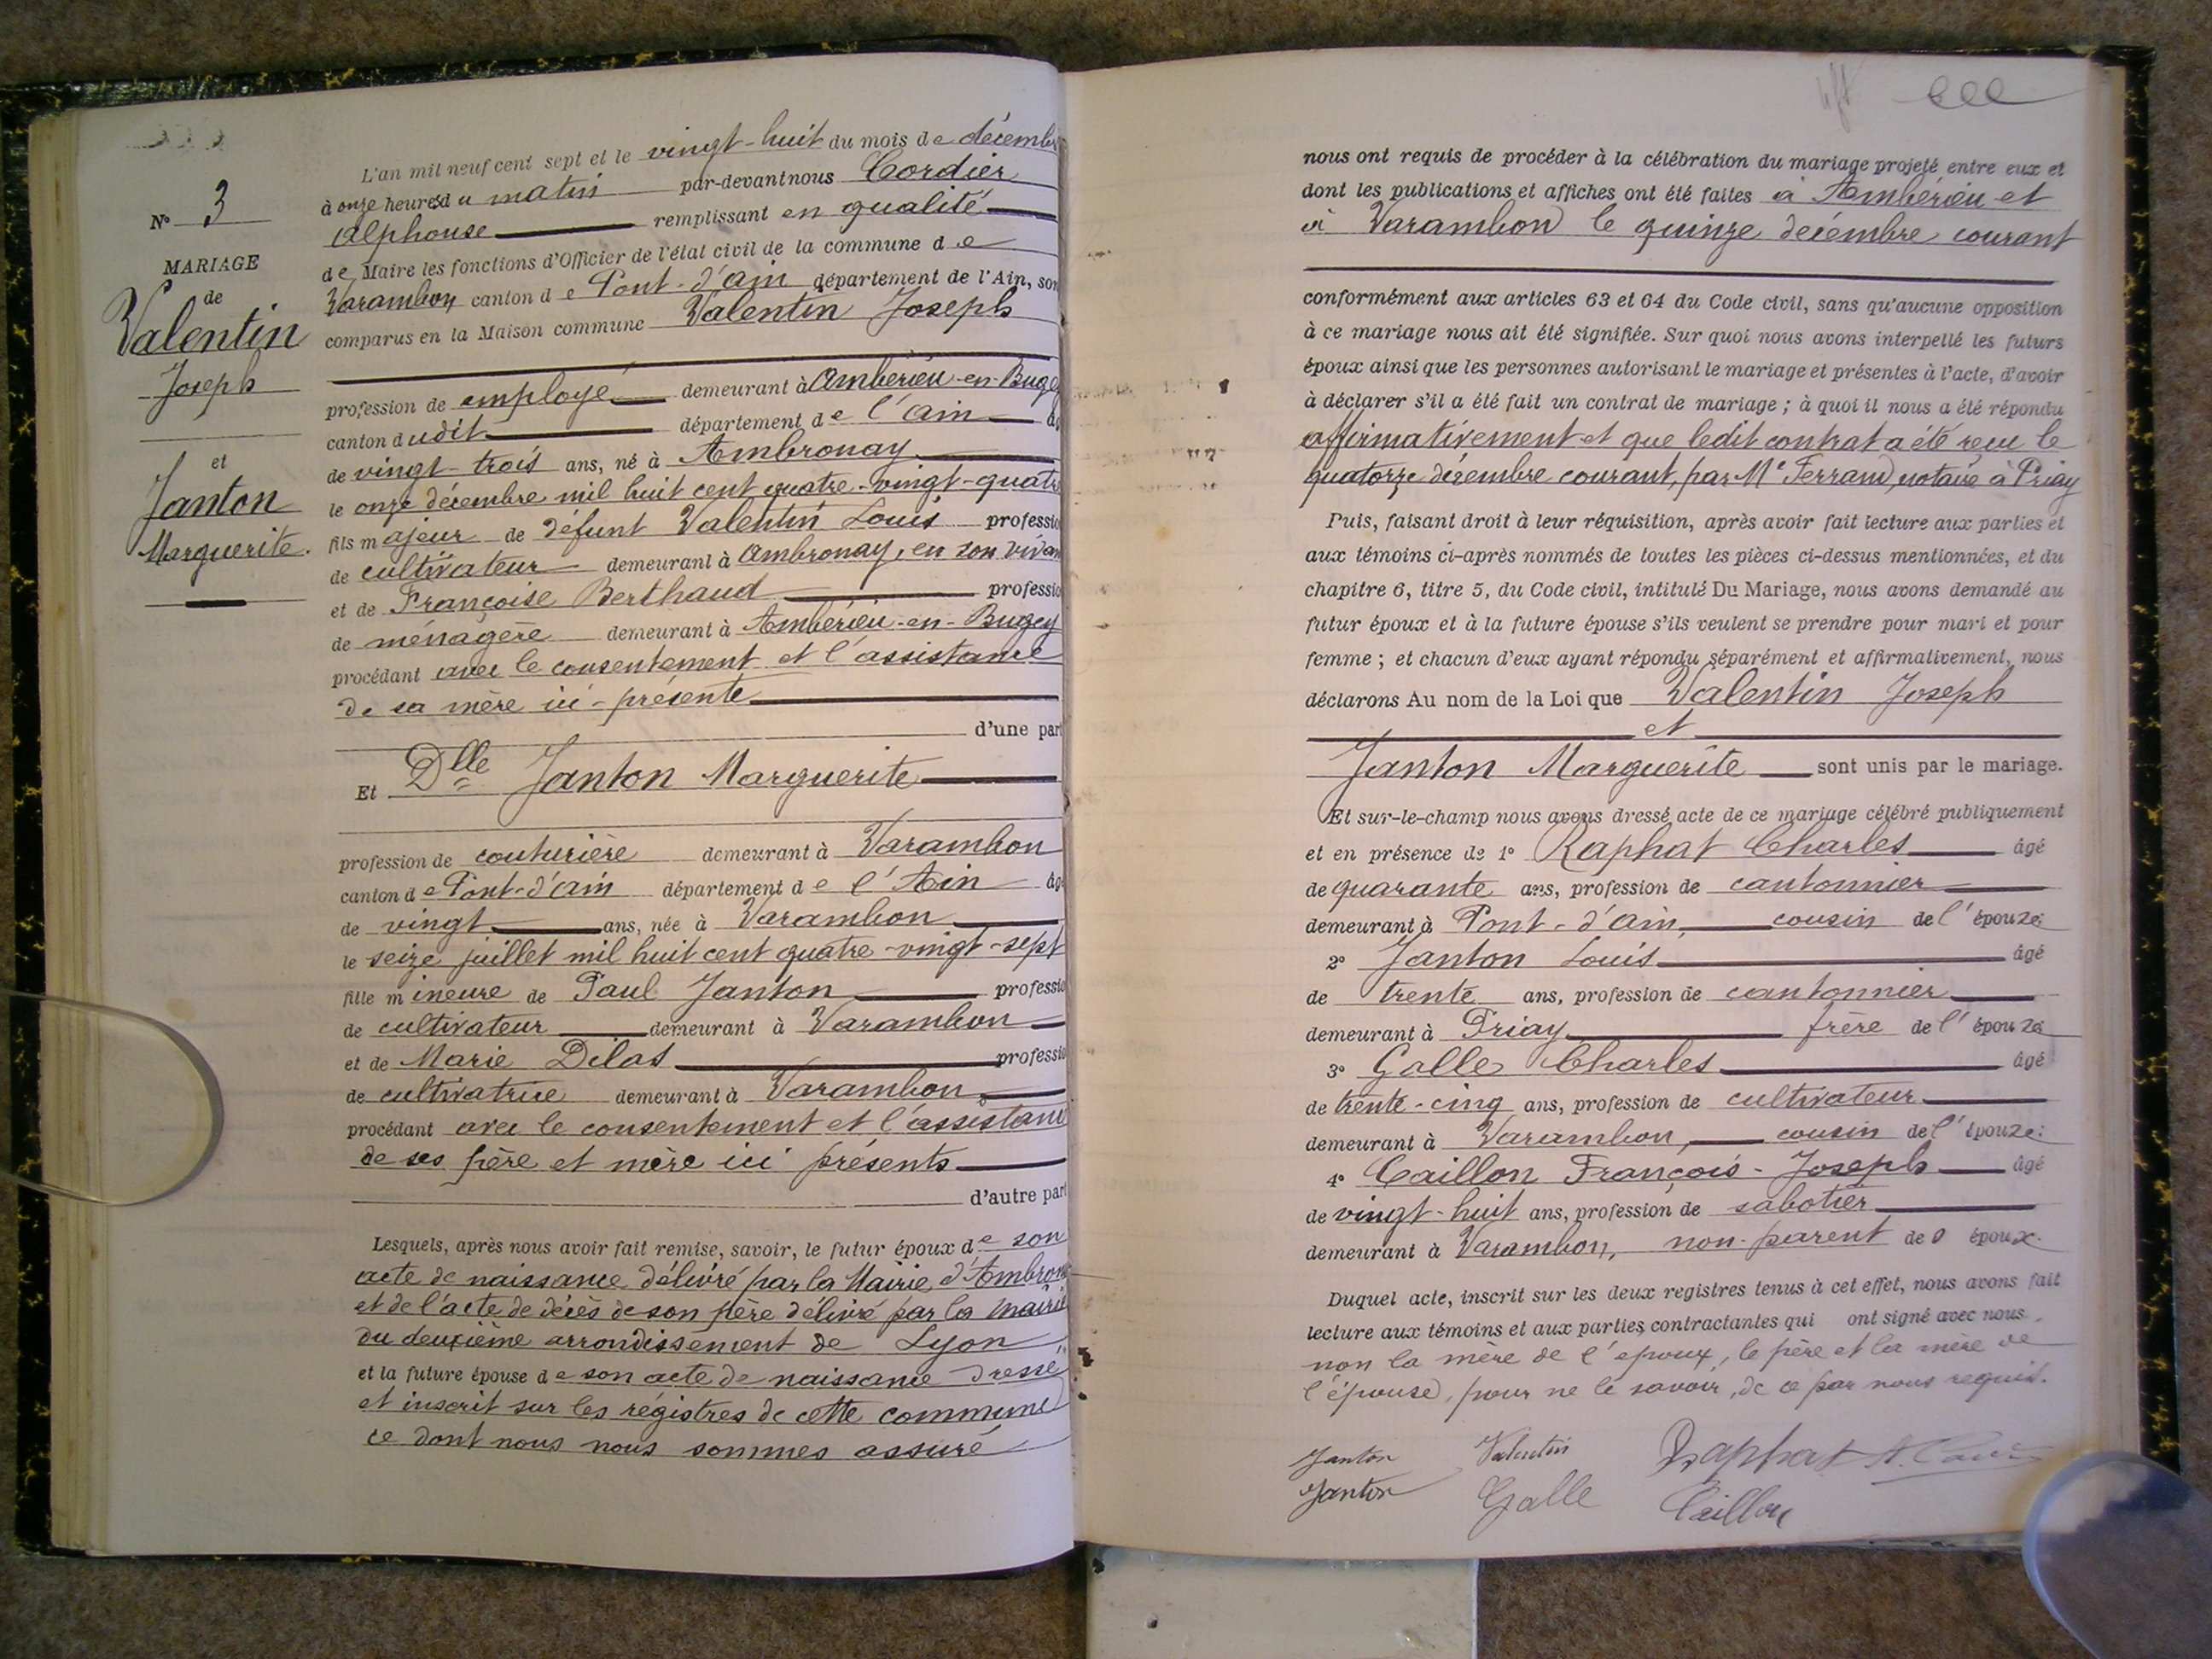 N° 3
MARIAGE
de
Valentin
Joseph
et
Janton
Marguerite.
L'an mil neuf cent sept et le vingt-huit du mois de décembre
à onze heures du matin par-devant nous Cordier
Alphonse remplissant en qualité
de Maire les fonctions d'Officier de l'état civil de la commune de
Varambon canton de Pont-d'ain département de l'Ain, son
comparus en la Maison commune Valentin Joseph
profession de employé demeurant à Ambérieu-en-Bugey
canton dudit département de l'ain âgé
de vingt-trois ans, né à Ambronay
le onze décembre mil huit cent quatre-vingt-quatre
fils majeur de défunt Valentin Louis profession
de cultivateur demeurant à Ambronay, en son vivant
et de Françoise Berthaud profession
de ménagère demeurant à Ambérieu-en-Bugey
procédant avec le consentement et l'assistance
de sa mère ici-présente
d'une part
Et Dlle Janton Marguerite
profession de couturière demeurant à Varambon
canton de Pont-d'ain département de l'Ain âgé
de vingt ans, née à Varambon
le seize juillet mil huit cent quatre-vingt-sept
fille mineure de Paul Janton profession
de cultivateur demeurant à Varambon
et de Marie Dilas profession
de cultivatrice demeurant à Varambon
procédant avec le consentement et l'assistance
de ses père et mère ici présents
d'autre part
Lesquels, après nous avoir fait remise, savoir, le futur époux de son
acte de naissance délivré par la Mairie d'Ambronay
et de l'acte de décès de son père délivré par la mairie
du deuxième arrondissement de Lyon
et la future épouse de son acte de naissance dressé
et inscrit sur les régistres de cette commune
ce dont nous nous sommes assuré
nous ont requis de procéder à la célébration du mariage projeté entre eux et
dont les publications et affiches ont été faites à Ambérieu et
à Varambon le quinze décembre courant
conformément aux articles 63 et 64 du Code civil, sans qu'aucune opposition
à ce mariage nous ait été signifiée. Sur quoi nous avons interpellé les futurs
époux ainsi que les personnes autorisant le mariage et présentes à l'acte, d'avoir
à déclarer s'il a été fait un contrat de mariage ; à quoi il nous a été répondu
affirmativement et que ledit contrat a été reçu le
quatorze décembre courant, par Me Ferrand, notaire à Priay
Puis, faisant droit à leur réquisition, après avoir fait lecture aux parties et
aux témoins ci-après nommés de toutes les pièces ci-dessus mentionnées, et du
chapitre 6, titre 5, du Code civil, intitulé Du Mariage, nous avons demandé au
futur époux et à la future épouse s'ils veulent se prendre pour mari et pour
femme ; et chacun d'eux ayant répondu séparément et affirmativement, nous
déclarons Au nom de la Loi que Valentin Joseph
et
Janton Marguerite sont unis par le mariage.
Et sur-le-champ nous avons dressé acte de ce mariage célébré publiquement
et en présence de 1° Raphat Charles âgé
de quarante ans, profession de cantonnier
demeurant à Pont-d'ain, cousin de l'épouze
2° Janton Louis âgé
de trente ans, profession de cantonnier
demeurant à Priay frère de l'épouze
3° Galle Charles âgé
de trente-cinq ans, profession de cultivateur
demeurant à Varambon, cousin de l'épouze
4° Caillon François-Joseph âgé
de vingt-huit ans, profession de sabotier
demeurant à Varambon, non-parent des époux.
Duquel acte, inscrit sur les deux registres tenus à cet effet, nous avons fait
lecture aux témoins et aux parties contractantes qui ont signé avec nous,
non la mère de l'époux, le père et la mère de
l'épouse, pour ne le savoir, de ce par nous requis.
Janton Valentin Raphat
Janton Galle Caillon